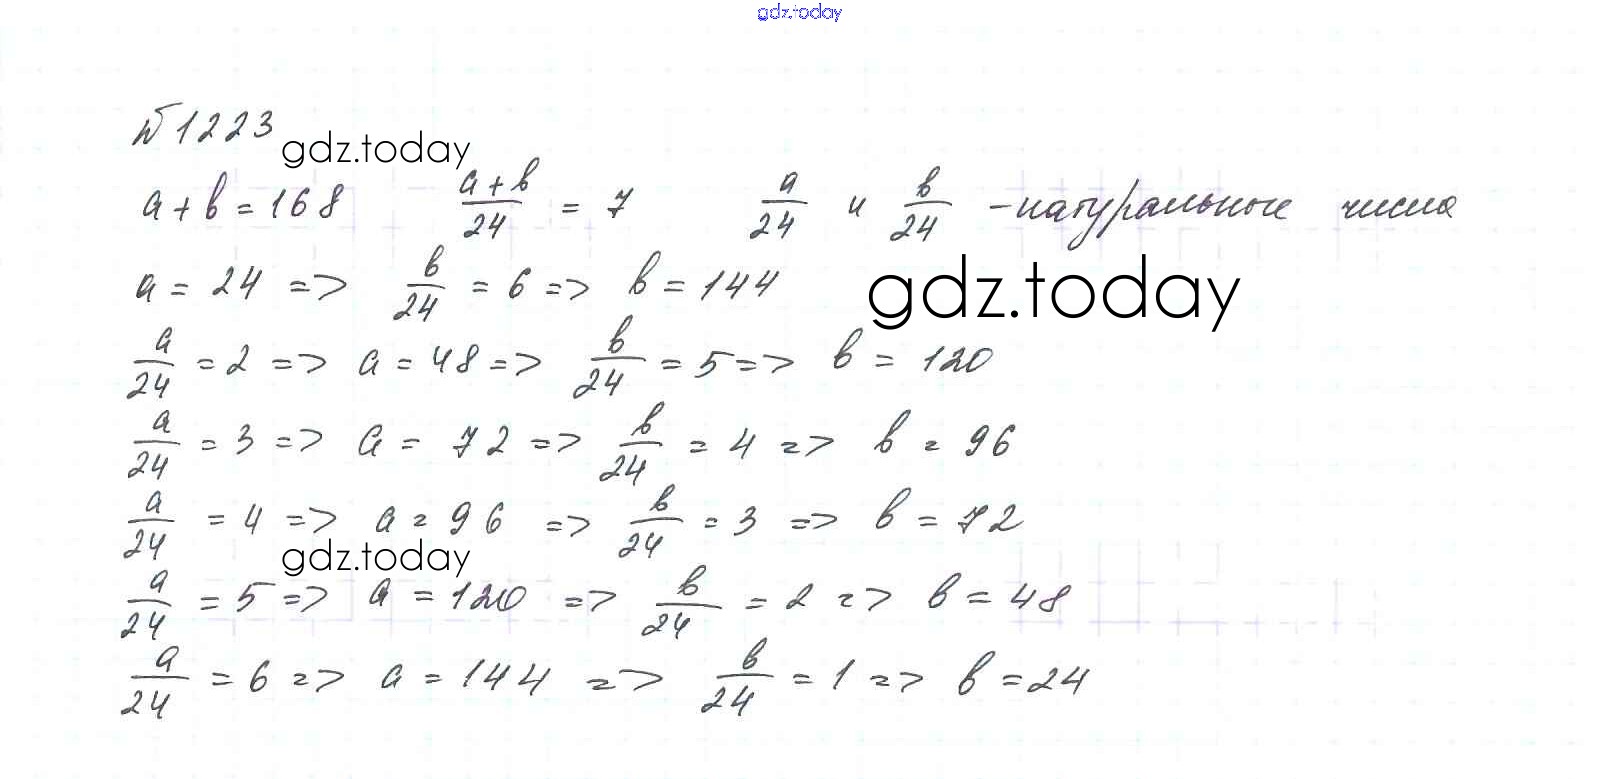 gdz.today
№1223
gdz.today
a + b = 168 (a + b)/24 = 7 a/24 и b/24 – натуральные числа
a = 24 => b/24 = 6 => b = 144
gdz.today
a/24 = 2 => a = 48 => b/24 = 5 => b = 120
a/24 = 3 => a = 72 => b/24 = 4 => b = 96
a/24 = 4 => a = 96 => b/24 = 3 => b = 72
gdz.today
a/24 = 5 => a = 120 => b/24 = 2 => b = 48
a/24 = 6 => a = 144 => b/24 = 1 => b = 24